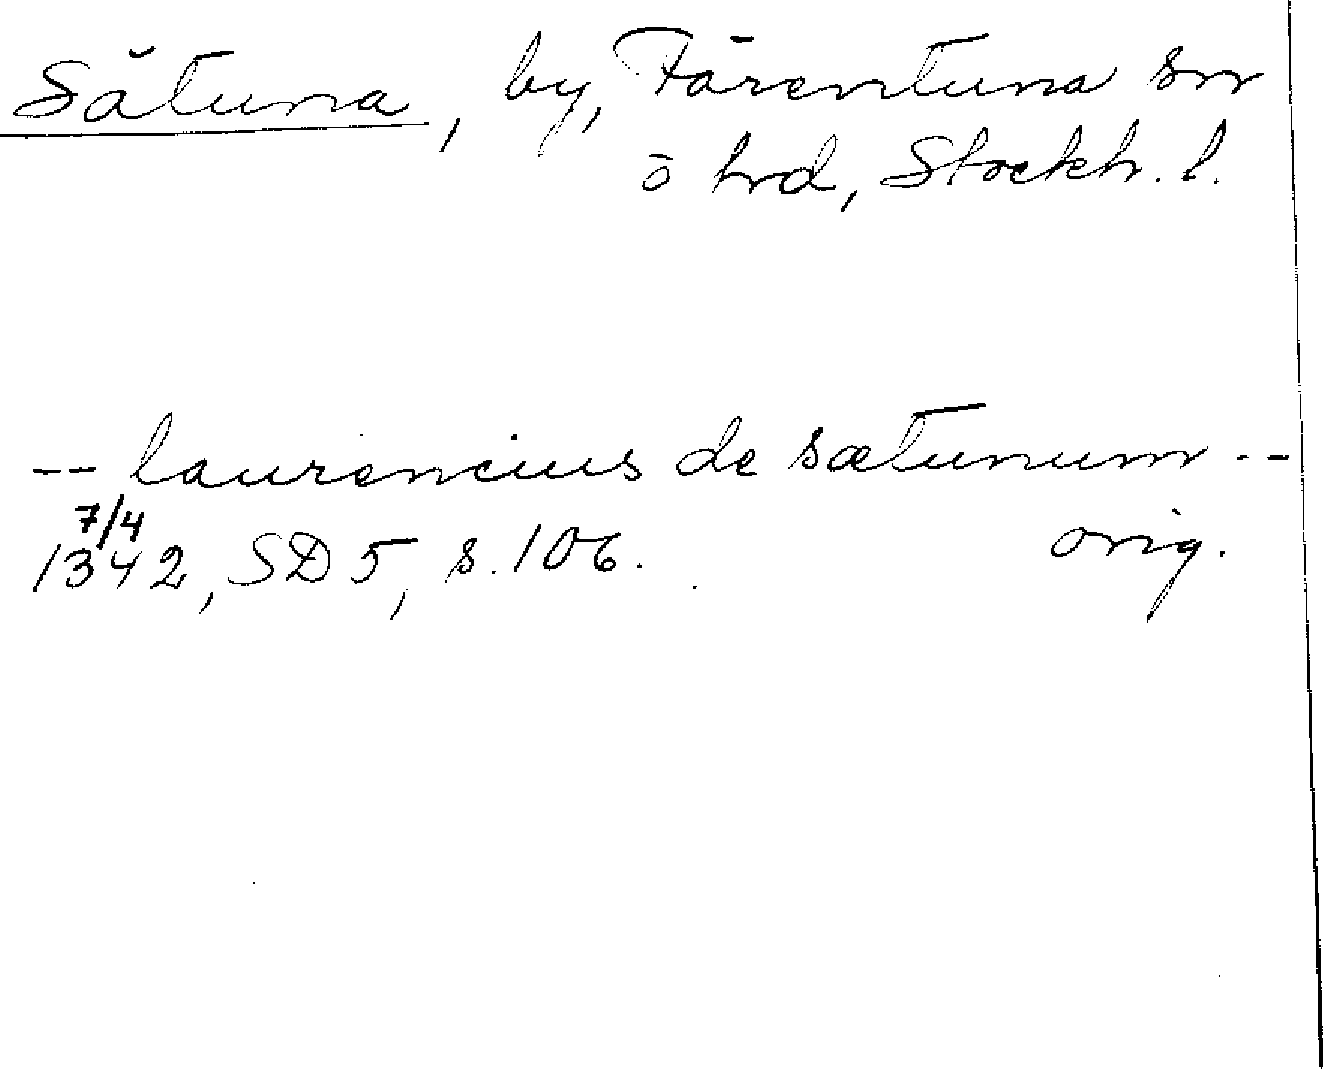 Sätuna, by, Färentuna sn
o hrd, Stockh. l.
-- laurencius de sætunum --
7/4
1342, SD 5, s. 106. orig.